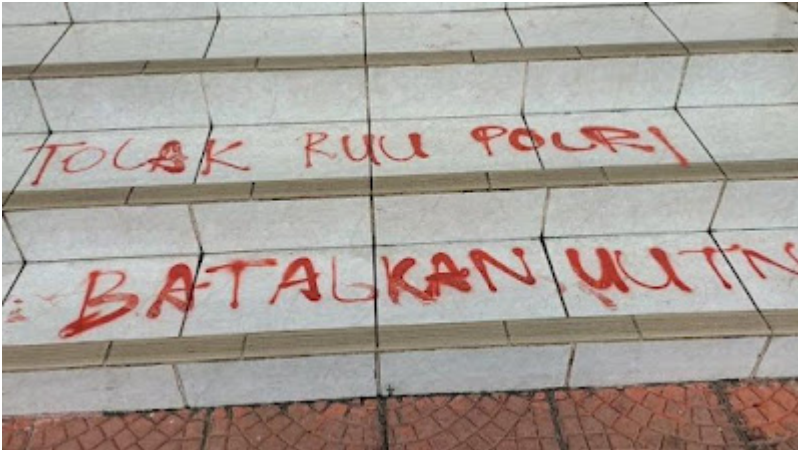 TOLAK RUU POLRI
BATALKAN UUTN